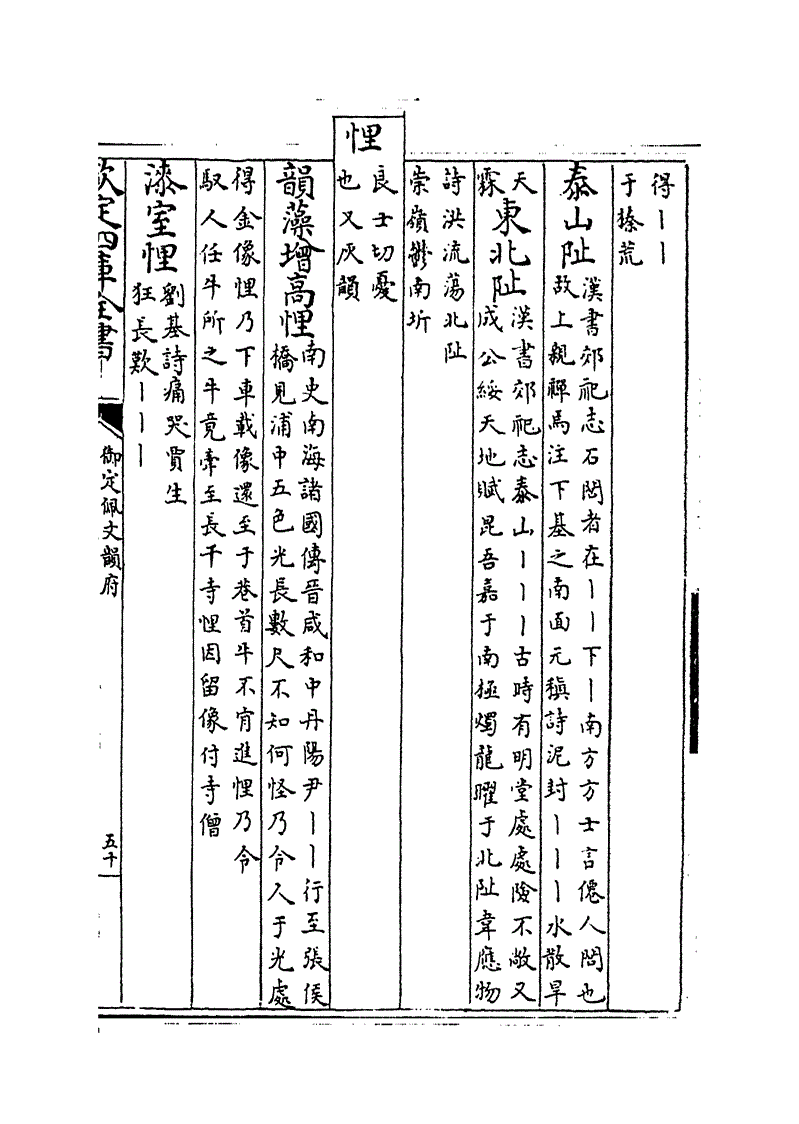 得丨丨
于榛荒
泰山阯
漢書郊祀志石閭者在丨丨下丨南方方士言僊人閭也
故上親禪焉注下基之南面元稹詩泥封丨丨丨水散旱
天
霖
東北阯
漢書郊祀志泰山丨丨丨古時有明堂處處險不敞又
成公綏天地賦昆吾嘉于南極燭龍曜于北阯韋應物
詩洪流蕩北阯
崇嶺鬱南圻
悝
良士切憂
也又灰韻
韻藻增高悝
南史南海諸國傳晉咸和中丹陽尹丨丨行至張侯
橋見浦中五色光長數尺不知何怪乃令人于光處
得金像悝乃下車載像還至于巷首牛不肯進悝乃令
馭人任牛所之牛竟牽至長干寺悝因留像付寺僧
漆室悝
劉基詩痛哭賈生
狂長歎丨丨丨
欽定四庫全書
御定佩文韻府
五十